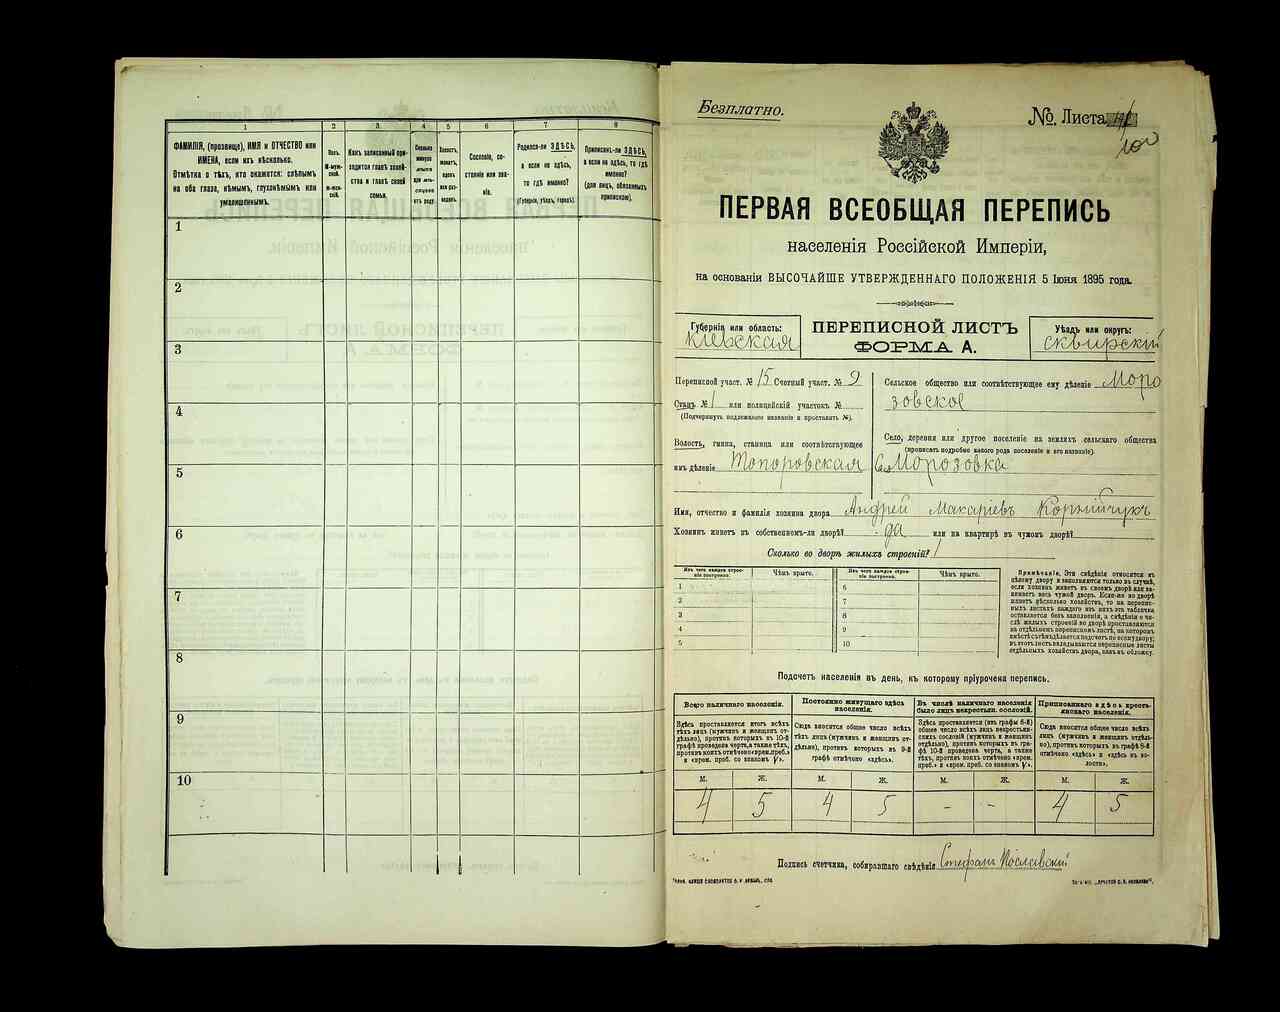 1
2
3.
4
5
6
7
8
ФАМИЛІЯ, (прозвище), ИМЯ и ОТЧЕСТВО или
ИМЕНА, если ихъ нѣсколько.
Отмѣтка о тѣхъ, кто окажется: слѣпымъ
на оба глаза, нѣмымъ, глухонѣмымъ или
умалишеннымъ.
Полъ.
М-муж-
ской.
ж-жен-
скій.
Какъ записанный при-
ходится главѣ хозяй-
ства и главѣ своей
семьи.
Сколько
минуло
лѣтъ
или мѣ-
сяцевъ
отъ роду.
Сословіе, со-
стояніе или зва-
ніе.
Родился-ли ЗДѢСЬ,
а если не здѣсь,
то гдѣ именно?
(Губернія, уѣздъ, городъ).
Приписанъ-ли ЗДѢСЬ,
а если не здѣсь, то гдѣ
именно?
(для лицъ, обязанныхъ
припискою).
1
2
3
4
5
6
7
8
9
10
Безплатно.
№ Листа
100
ПЕРВАЯ ВСЕОБЩАЯ ПЕРЕПИСЬ
населенія Россійской Имперіи,
на основаніи ВЫСОЧАЙШЕ УТВЕРЖДЕННАГО ПОЛОЖЕНІЯ 5 Іюня 1895 года.
Губернія или область:
Кіевская
ПЕРЕПИСНОЙ ЛИСТЪ
ФОРМА А.
Уѣздъ или округъ:
Сквирскій
Переписной участ. № 15 Счетный участ. № 9
Станъ № 1 или полицейскій участокъ №
(Подчеркнуть подлежащее названіе и проставить №).
Волость, гмина, станица или соотвѣтствующее
имъ дѣленіе Топоровская
Сельское общество или соотвѣтствующее ему дѣленіе Моро
зовское
Село, деревня или другое поселеніе на земляхъ сельскаго общества
(прописать подробно какого рода поселеніе и его названіе).
Село Морозовка
Имя, отчество и фамилія хозяина двора Андрей Макаріевъ Корнійчукъ
Хозяинъ живетъ въ собственномъ-ли дворѣ? да или на квартирѣ въ чужомъ дворѣ?
Сколько во дворѣ жилыхъ строеній? 1
Изъ чего каждое строе-
ніе построено.
Чѣмъ крыто.
Изъ чего каждое строе-
ніе построено.
Чѣмъ крыто.
1
2
3
4
5
6
7
8
9
10
Примѣчаніе. Эти свѣдѣнія относятся къ
цѣлому двору и заполняются только въ случаѣ,
если хозяинъ живетъ въ своемъ дворѣ или за-
нимаетъ весь чужой дворъ. Если-же во дворѣ
живетъ нѣсколько хозяйствъ, то на перепис-
ныхъ листахъ каждаго изъ нихъ эта табличка
оставляется безъ заполненія, а свѣдѣнія о чи-
слѣ жилыхъ строеній во дворѣ проставляются
на отдѣльномъ переписномъ листѣ, на которомъ
вмѣстѣ съ тѣмъ дѣлается подсчетъ по всему двору;
въ этотъ листъ вкладываются переписные листы
отдѣльныхъ хозяйствъ двора, какъ въ обложку.
Подсчетъ населенія въ день, къ которому пріурочена перепись.
Всего наличнаго населенія.
Здѣсь проставляется итогъ всѣхъ
тѣхъ лицъ (мужчинъ и женщинъ от-
дѣльно), противъ которыхъ въ 10-й
графѣ проведена черта, а также тѣхъ,
противъ коихъ отмѣчено «врем. преб.»
и «врем. преб. со знакомъ V».
Постоянно живущаго здѣсь
населенія.
Сюда вносится общее число всѣхъ
лицъ (мужчинъ и женщинъ от-
дѣльно), противъ которыхъ въ 9-й
графѣ отмѣчено «здѣсь».
Въ числѣ наличнаго населенія
было лицъ некрестьян. сословій.
Здѣсь проставляется (изъ графы 6-й)
общее число всѣхъ лицъ некрестьян-
скихъ сословій (мужчинъ и женщинъ
отдѣльно), противъ которыхъ въ гра-
фѣ 10-й проведена черта, а также
тѣхъ, противъ коихъ отмѣчено «врем.
преб.» и «врем. преб. со знакомъ V».
Приписаннаго здѣсь кресть-
янскаго населенія.
Сюда вносится общее число всѣхъ
лицъ (мужчинъ и женщинъ отдѣль-
но), противъ которыхъ въ графѣ 8-й
отмѣчено «здѣсь» и «здѣсь въ во-
лости».
М. Ж. М. Ж. М. Ж. М. Ж.
4 5 4 5 - - 4 5
Подпись счетчика, собиравшаго свѣдѣнія